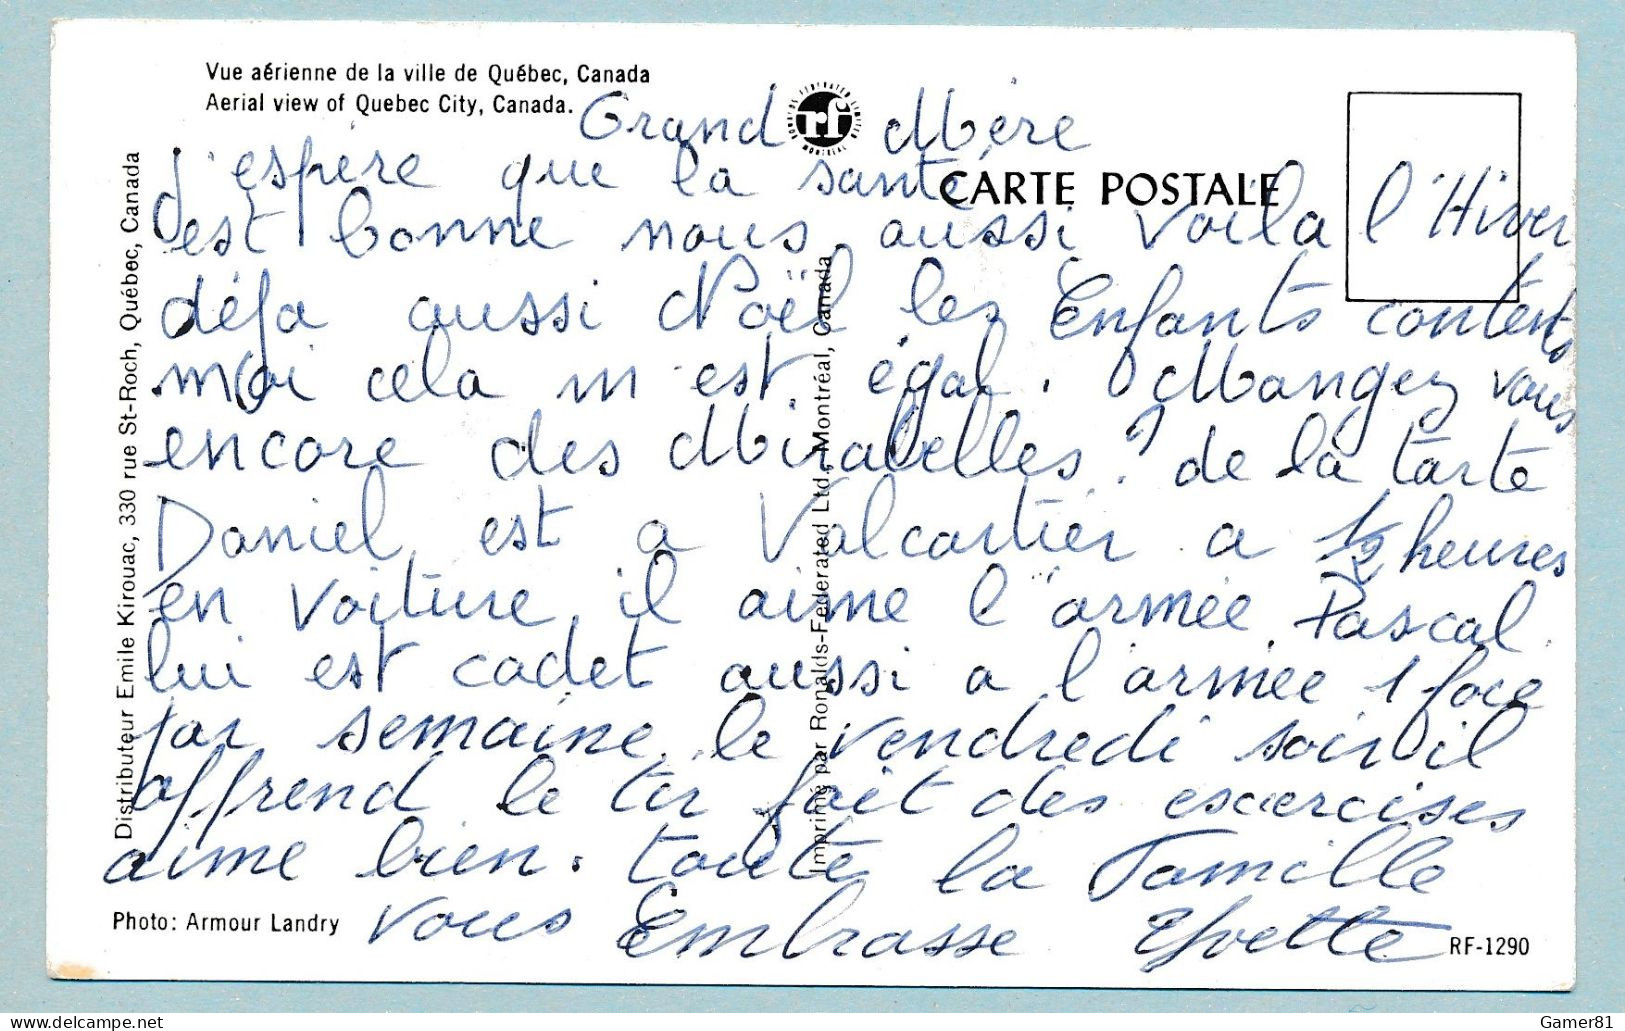 Vue aérienne de la ville de Québec, Canada
Aerial view of Quebec City, Canada.
rf
MONTREAL
CARTE POSTALE
Grand Mère
J'espère que la santé
est bonne nous aussi voila l'Hiver
déja aussi Noël les Enfants contents
moi cela m'est égal. Mangez vous
encore des Mirabelles? de la tarte
Daniel est a Valcartier a 1/2 heures
en voiture il aime l'armée. Pascal
lui est cadet aussi a l'armée 1 foie
par semaine le vendredi soir il
apprend le tir fait des exercises
aime bien. toute la Famille
vous Embrasse Yvette
Distributeur Emile Kirouac, 330 rue St-Roch, Québec, Canada
Imprimé par Ronalds-Federated Ltd., Montréal, Canada
Photo: Armour Landry
RF-1290
delcampe.net
Gamer81